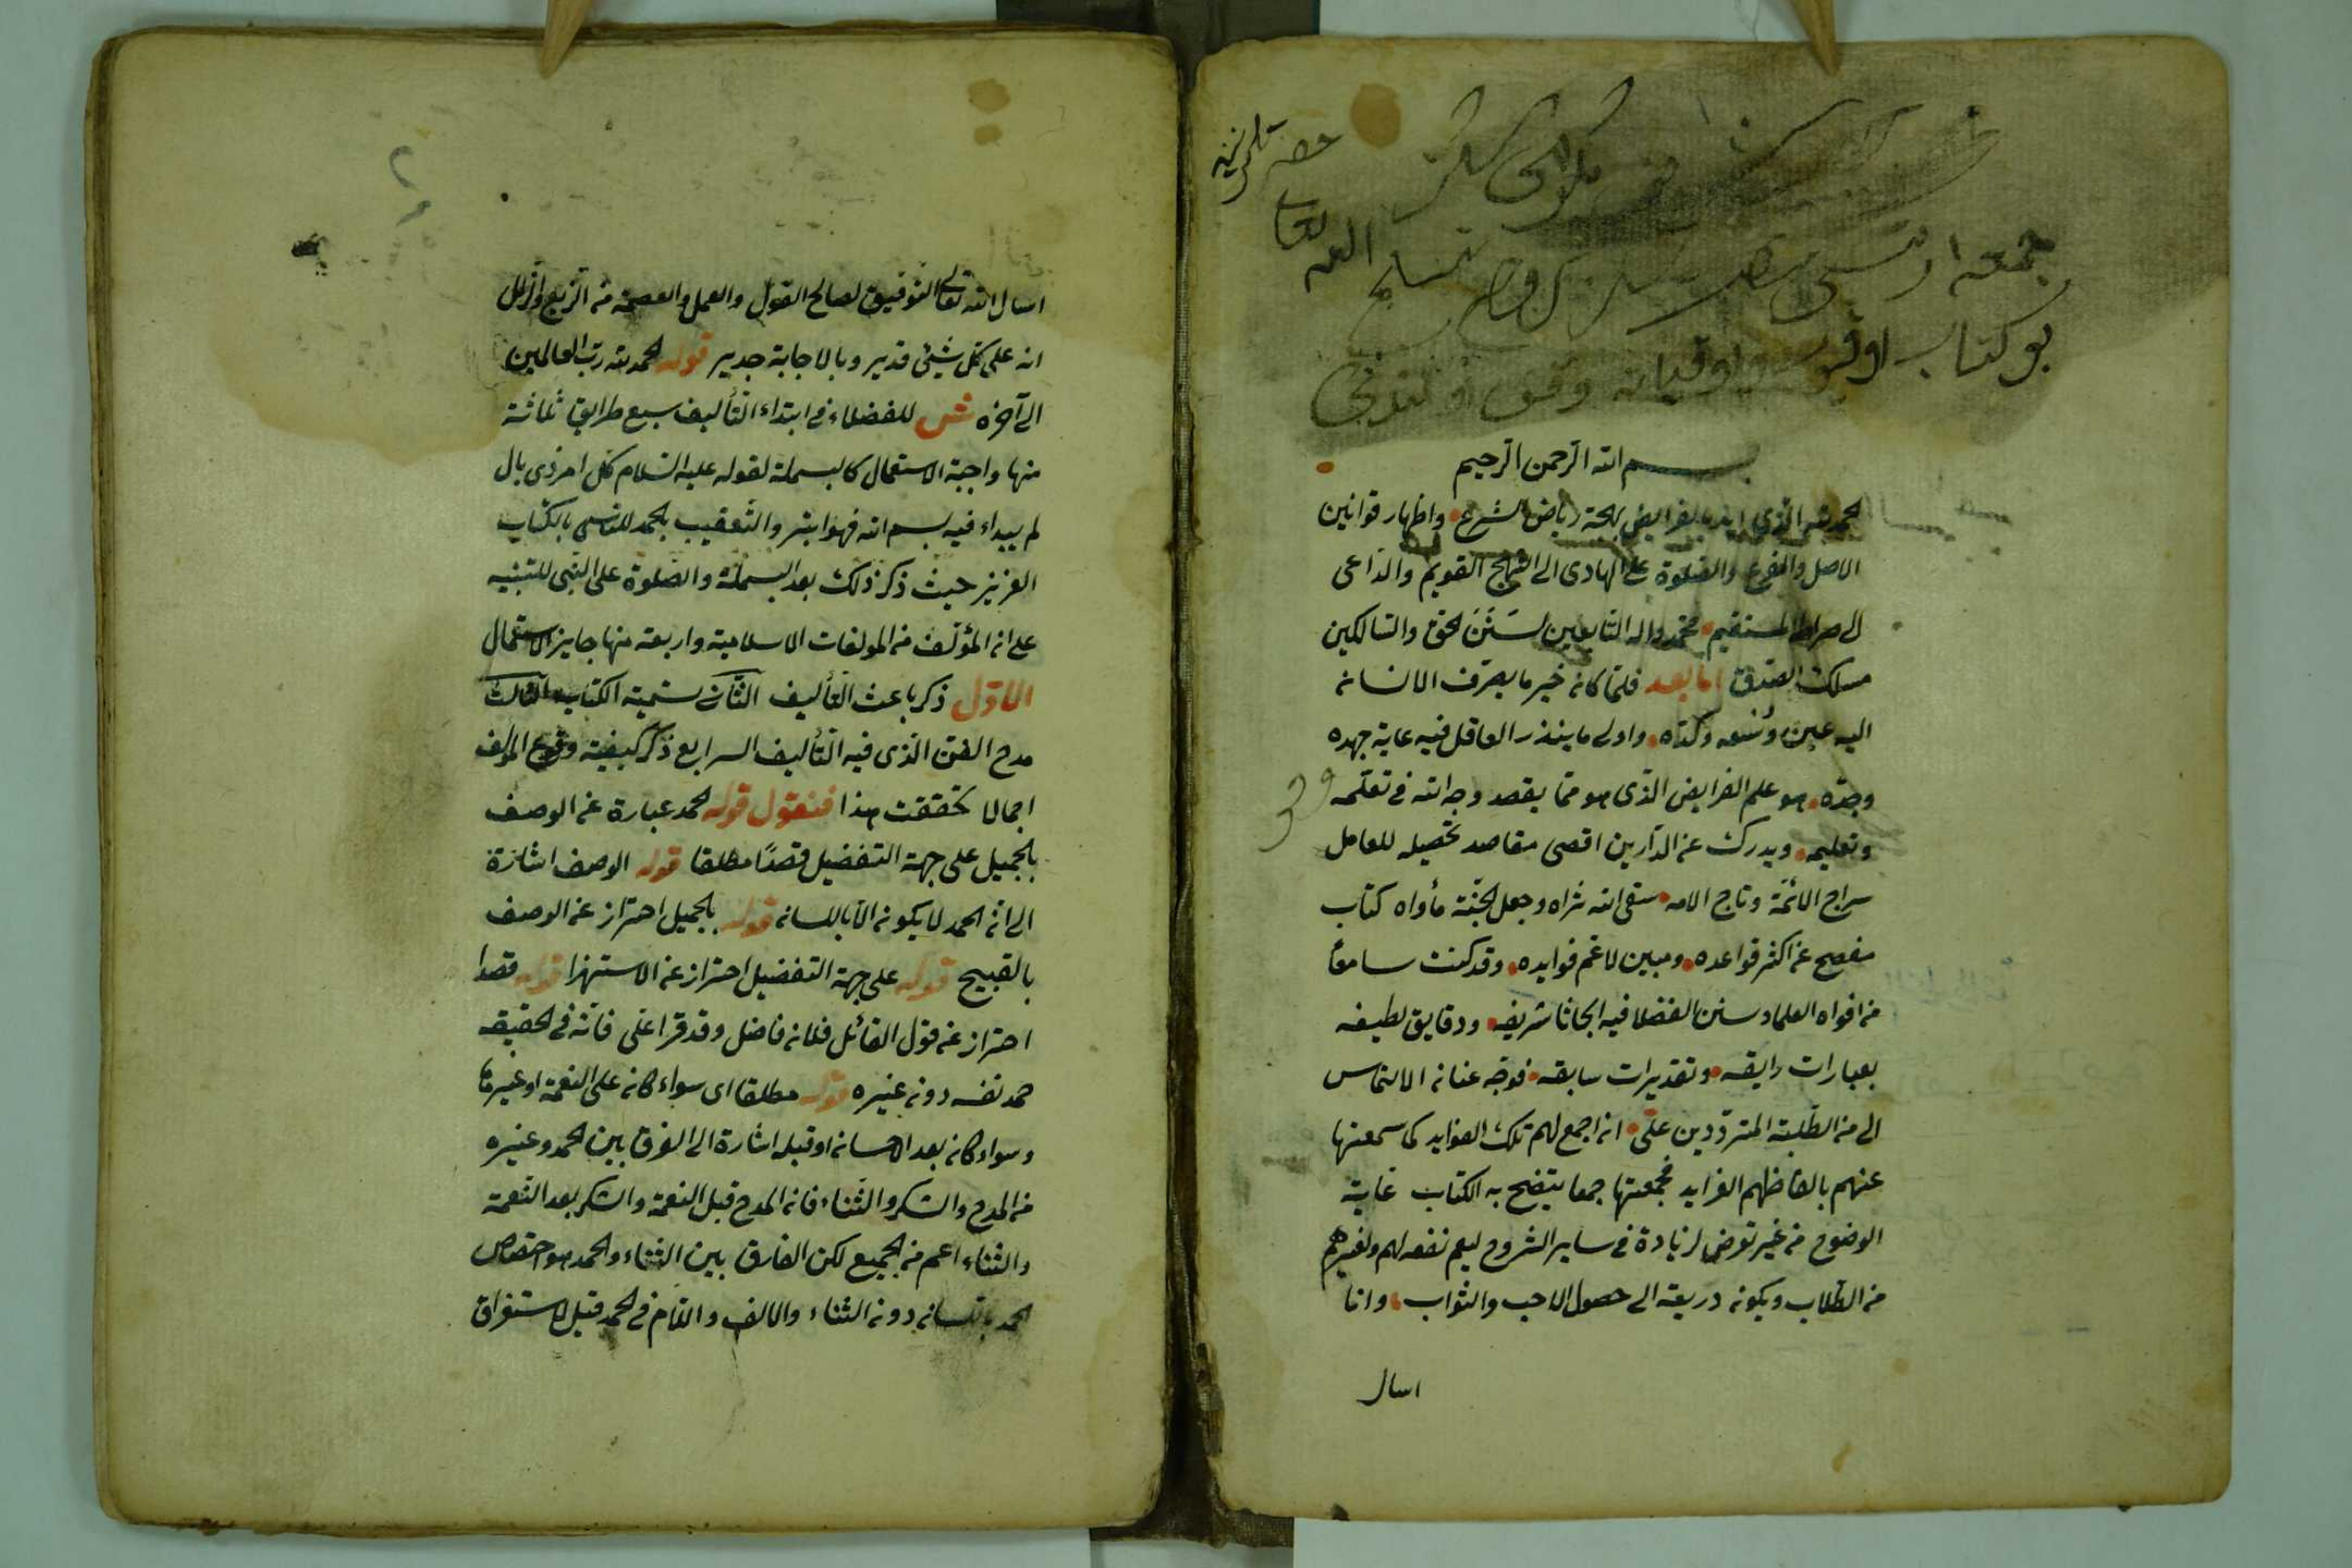 بو كتاب
بسم الله الرحمن الرحيم
الحمد لله الذي ايد بالفرايض بهجة رياض الشرع واظهار قوانين
الاصل والفرع والصلوة على الهادى الى النهج القويم والداعى
الى صراط المستقيم محمد واله التابعين لسنن الحق والسالكين
مسلك الصدق اما بعد فلما كان خير ما يصرف الانسان
اليه عين وسعه وكده واولى ما ينذر العاقل فيه غاية جهده
وجده هو علم الفرايض الذى هو مما يقصد وجه الله فى تعلمه
وتعليمه ويدرك عن الدارين اقصى مقاصد تحصيله للعامل
سراج الائمة وتاج الامه سقى الله ثراه وجعل الجنة مأواه كتاب
مفصح عن اكثر قواعده ومبين لاعم فوايده وقد كنت سامعا
من افواه العلماء وسنن الفضلا فيه ابحاثا شريفه ودقايق لطيفه
بعبارات رايقه وتقديرات سابقه فوجه عنان الالتماس
الى من الطلبة المترددين على ان اجمع لهم تلك الفوايد كما سمعتها
عنهم بالفاظهم الفرايد فجمعتها جمعا يتضح به الكتاب غاية
الوضوح من غير تعرض لزيادة فى ساير الشروح ليعم نفعه لهم ولغيرهم
من الطلاب ويكون دريعة الى حصول الاجب والثواب وانا
اسال
اسال الله تعالى التوفيق لصالح القول والعمل والعصمة من الزيغ والزلل
انه على كل شيئ قدير وبالاجابة جدير قوله الحمد لله رب العالمين
الى آخره ش للفضلاء فى ابتداء التأليف سبع طرايق ثلاثة
منها واجبة الاستعمال كالبسملة لقوله عليه السلام كل امر ذى بال
لم يبداء فيه بسم الله فهو ابتر والتعقيب بالحمد للتاسى بالكتاب
العزيز حيث ذكر ذلك بعد البسملة والصلوة على النبى للتنبيه
على ان المؤلف من المولفات الاسلامية واربعة منها جايز الاستعمال
الاول ذكر باعث التأليف الثانى تسمية الكتاب الثالث
مدح الفن الذى فيه التأليف الرابع ذكر كيفية وقوع المولف
اجمالا تحققت هذا فنقول قوله الحمد عبارة عن الوصف
بالجميل على جهة التفضيل قصدا مطلقا قوله الوصف اشارة
الى ان الحمد لا يكون الا باللسان قوله بالجميل احتراز عن الوصف
بالقبيح قوله على جهة التفضيل احتراز عن الاستهزا قوله قصدا
احتراز عن قول القائل فلان فاضل وقد قرا على فانه فى الحقيقه
حمد نفسه دون غيره قوله مطلقا اى سواء كان على النعمة او غيرها
وسواء كان بعد الاحسان او قبله اشارة الى الفرق بين الحمد وغيره
من المدح والشكر والثناء فان المدح قبل النعمة والشكر بعد النعمة
والثناء اعم من الجميع لكن الفارق بين الثناء والحمد هو اختصاص
الحمد باللسان دون الثناء والالف واللام فى الحمد قيل لاستغراق